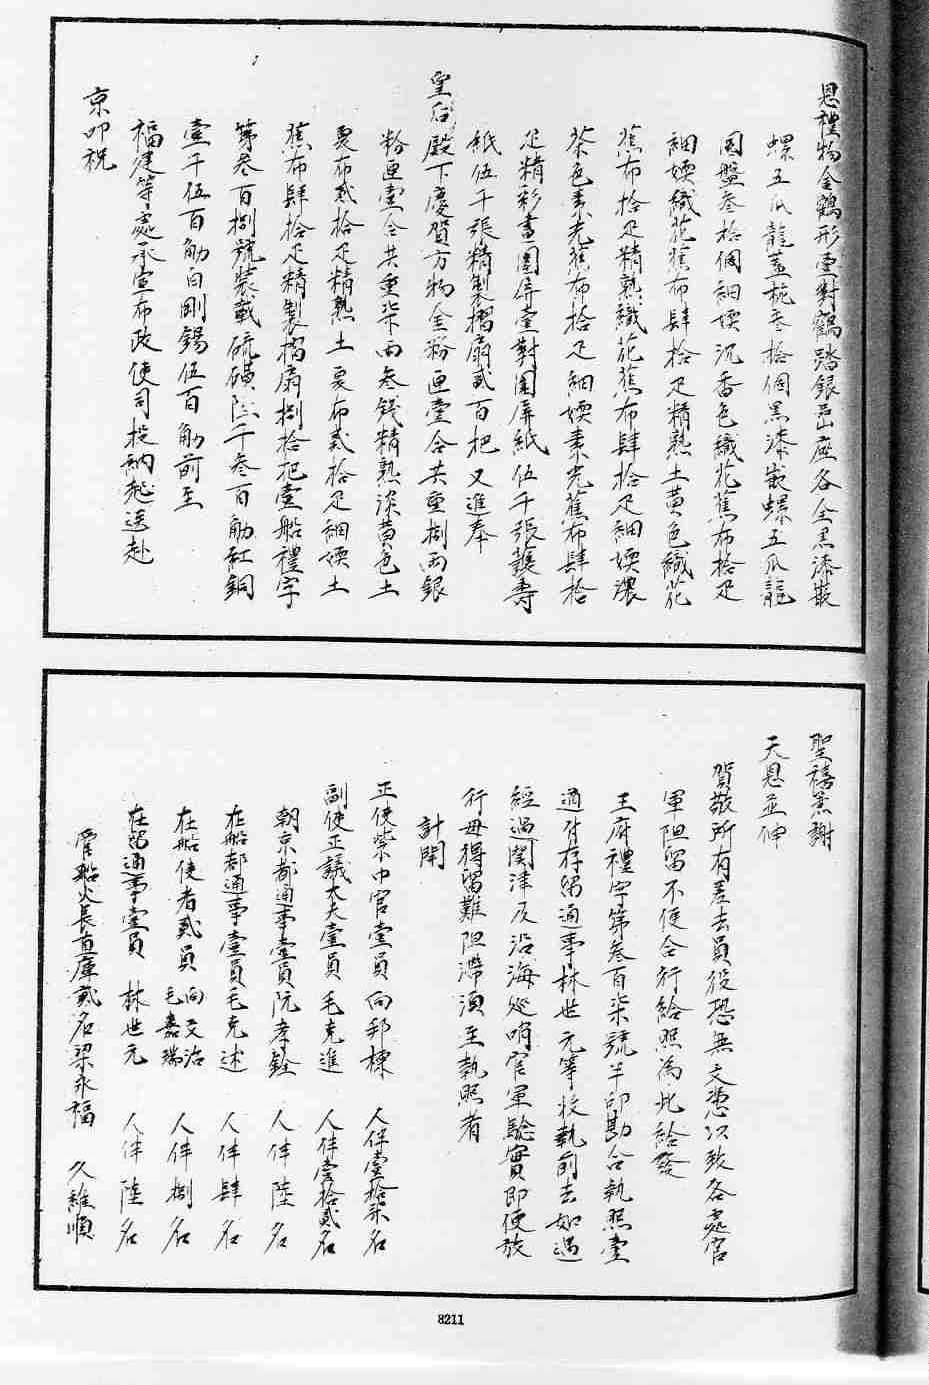 恩禮物金鶴形壹對鶴踏銀岩座各全黑漆嵌
螺五爪龍蓋椀叁拾個黑漆嵌螺五爪龍
圓盤叁拾個細嫩沉香色織花蕉布拾疋
細嫩織花蕉布肆拾疋精熟土黃色織花
蕉布拾疋精熟織花蕉布肆拾疋細嫩濃
茶色素光蕉布拾疋細嫩素光蕉布肆拾
疋精彩畫圍屏壹對圍屏紙伍千張護壽
紙伍千張精製摺扇貳百把又進奉
皇后殿下慶賀方物金粉匣壹合共重捌兩銀
粉匣壹合共重柒兩叁錢精熟淡黃色土
夏布貳拾疋精熟土夏布貳拾疋細嫩土
蕉布肆拾疋精製摺扇捌拾把壹船禮字
第叁百捌號裝載硫磺陸千叁百觔紅銅
壹千伍百觔白剛錫伍百觔前至
福建等處承宣布政使司投納起送赴
京叩祝
聖禧恭謝
天恩並伸
賀敬所有差去員役恐無文憑以致各處官
軍阻留不便合行給照為此給發
王府禮字第叁百柒號半印勘合執照壹
通付存留通事林世元等收執前去如遇
經過関津及沿海巡哨官軍驗實即便放
行毋得留難阻滯須至執照者
計開
正使紫巾官壹員向邦棟 人伴壹拾柒名
副使正議大夫壹員毛克進 人伴壹拾貳名
朝京都通事壹員阮孝銓 人伴陸名
在船都通事壹員毛克述 人伴肆名
在船使者貳員 向文治 毛嘉瑞 人伴捌名
在留通事壹員 林世元 人伴陸名
管船火長直庫貳名梁永福 久維順
8211